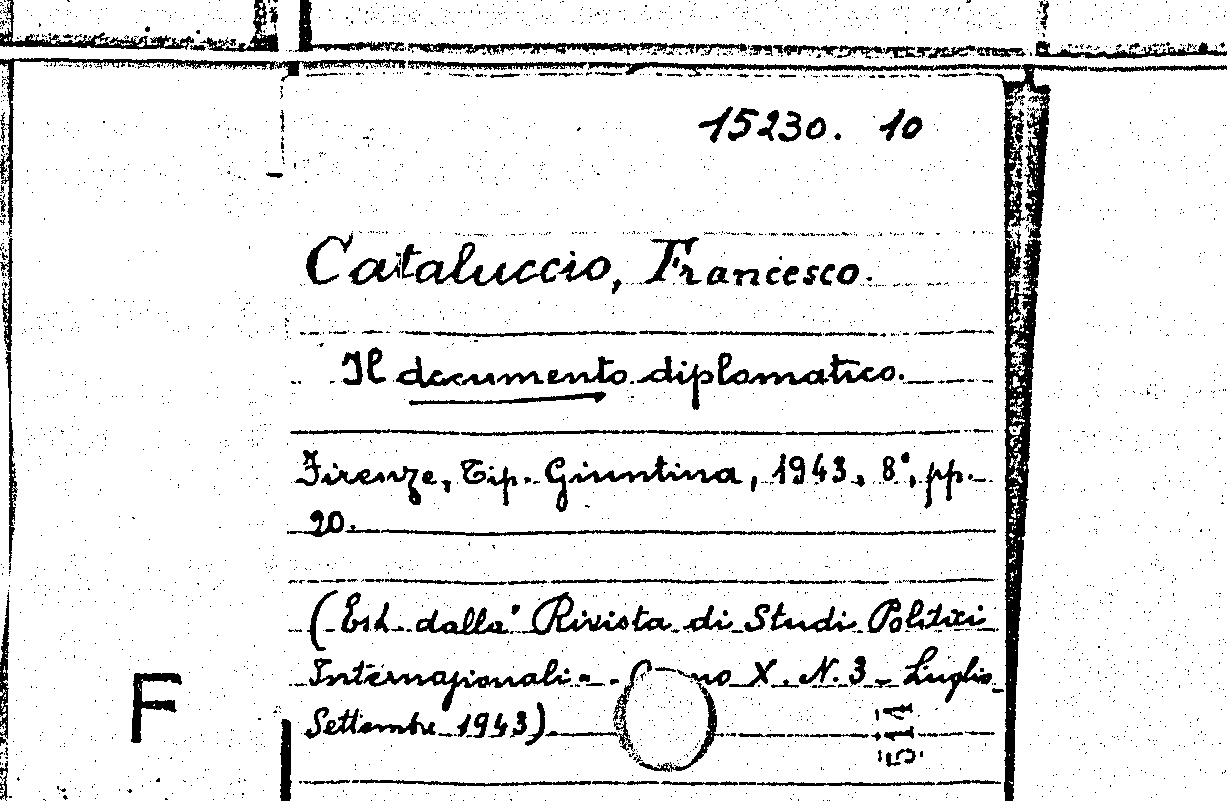 15230. 10
Cataluccio, Francesco.
Il documento diplomatico.
Firenze, Tip. Giuntina, 1943, 8°, pp.
20.
(Est. dalla" Rivista di Studi Politici
Internazionali - X. N. 3 - Luglio
Settembre 1943).
F
514